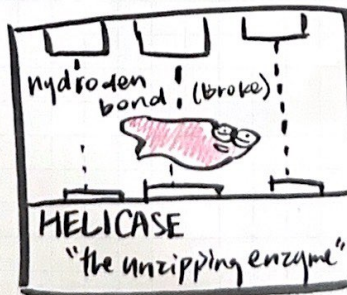 hydroden
bond (broke)
HELICASE
"the unzipping enzyme"